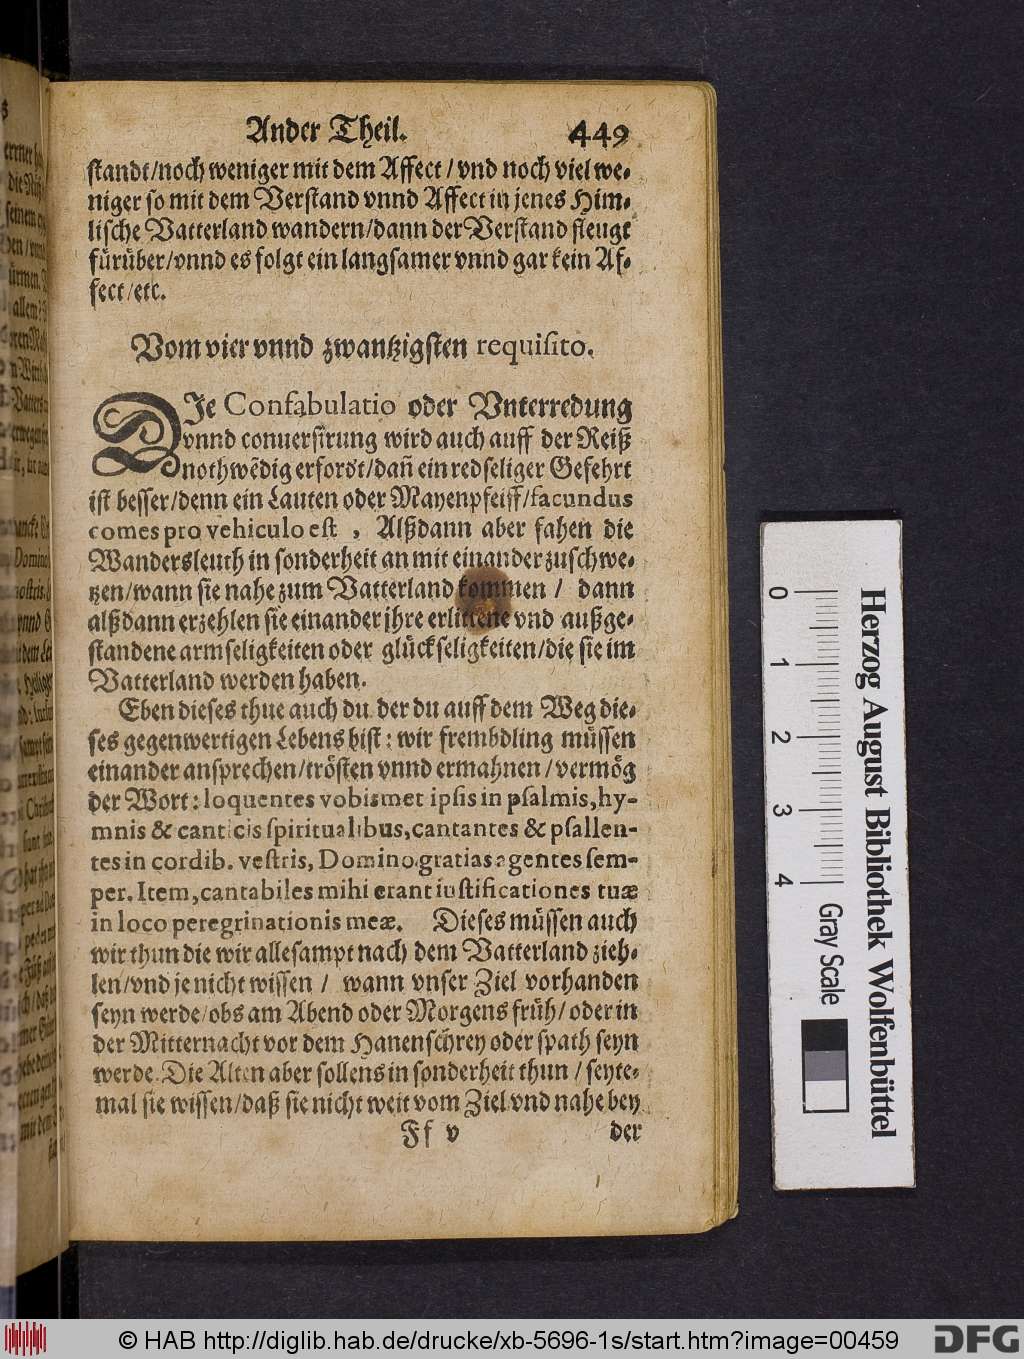 Ander Theil. 449
standt/noch weniger mit dem Affect/vnd noch viel we-
niger so mit dem Verstand vnnd Affect in jenes Him-
lische Vatterland wandern/dann der Verstand fleugt
fürüber/vnnd es folgt ein langsamer vnnd gar kein Af-
fect/etc.
Vom vier vnnd zwantzigsten requisito.
DIe Confabulatio oder Vnterredung
vnnd conuersirung wird auch auff der Reiß
nothwẽdig erfordt/dañ ein redseliger Gefehrt
ist besser/denn ein Lauten oder Mayenpfeiff/facundus
comes pro vehiculo est, Alßdann aber fahen die
Wandersleuth in sonderheit an mit einander zuschwe-
tzen/wann sie nahe zum Vatterland kommen/ dann
alßdann erzehlen sie einander jhre erlittene vnd außge-
standene armseligkeiten oder glückseligkeiten/die sie im
Vatterland werden haben.
Eben dieses thue auch du der du auff dem Weg die-
ses gegenwertigen Lebens bist: wir frembdling müssen
einander ansprechen/trösten vnnd ermahnen/vermög
der Wort: loquentes vobismet ipsis in psalmis, hy-
mnis & canticis spiritualibus, cantantes & psallen-
tes in cordib. vestris, Domino gratias agentes sem-
per. Item, cantabiles mihi erant iustificationes tuæ
in loco peregrinationis meæ. Dieses müssen auch
wir thun die wir allesampt nach dem Vatterland zieh-
len/vnd je nicht wissen/ wann vnser Ziel vorhanden
seyn werde/obs am Abend oder Morgens früh/oder in
der Mitternacht vor dem Hanenschrey oder spath seyn
werde. Die Alten aber sollens in sonderheit thun/seyte-
mal sie wissen/daß sie nicht weit vom Ziel vnd nahe bey
Ff v der
Herzog August Bibliothek Wolfenbüttel
0 1 2 3 4 Gray Scale
© HAB http://diglib.hab.de/drucke/xb-5696-1s/start.htm?image=00459
DFG